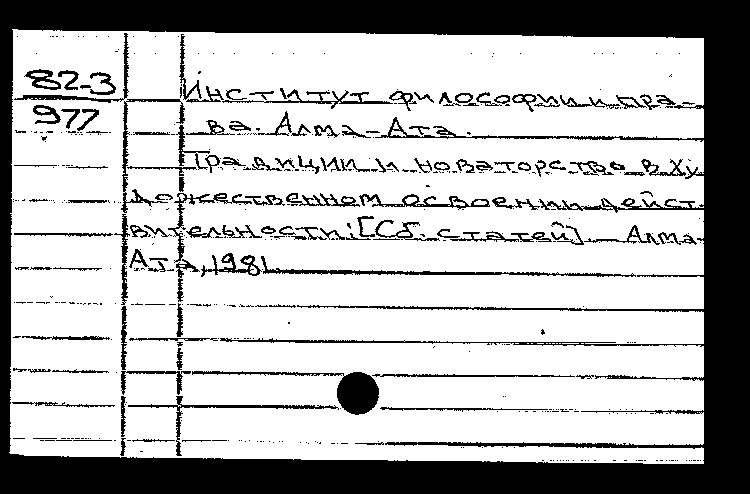 82-3
977
Институт философии и пра-
ва. Алма-Ата.
Традиции и новаторство в ху
дожественном освоении дейст-
вительности: [Сб. статей] Алма-
Ата, 1981